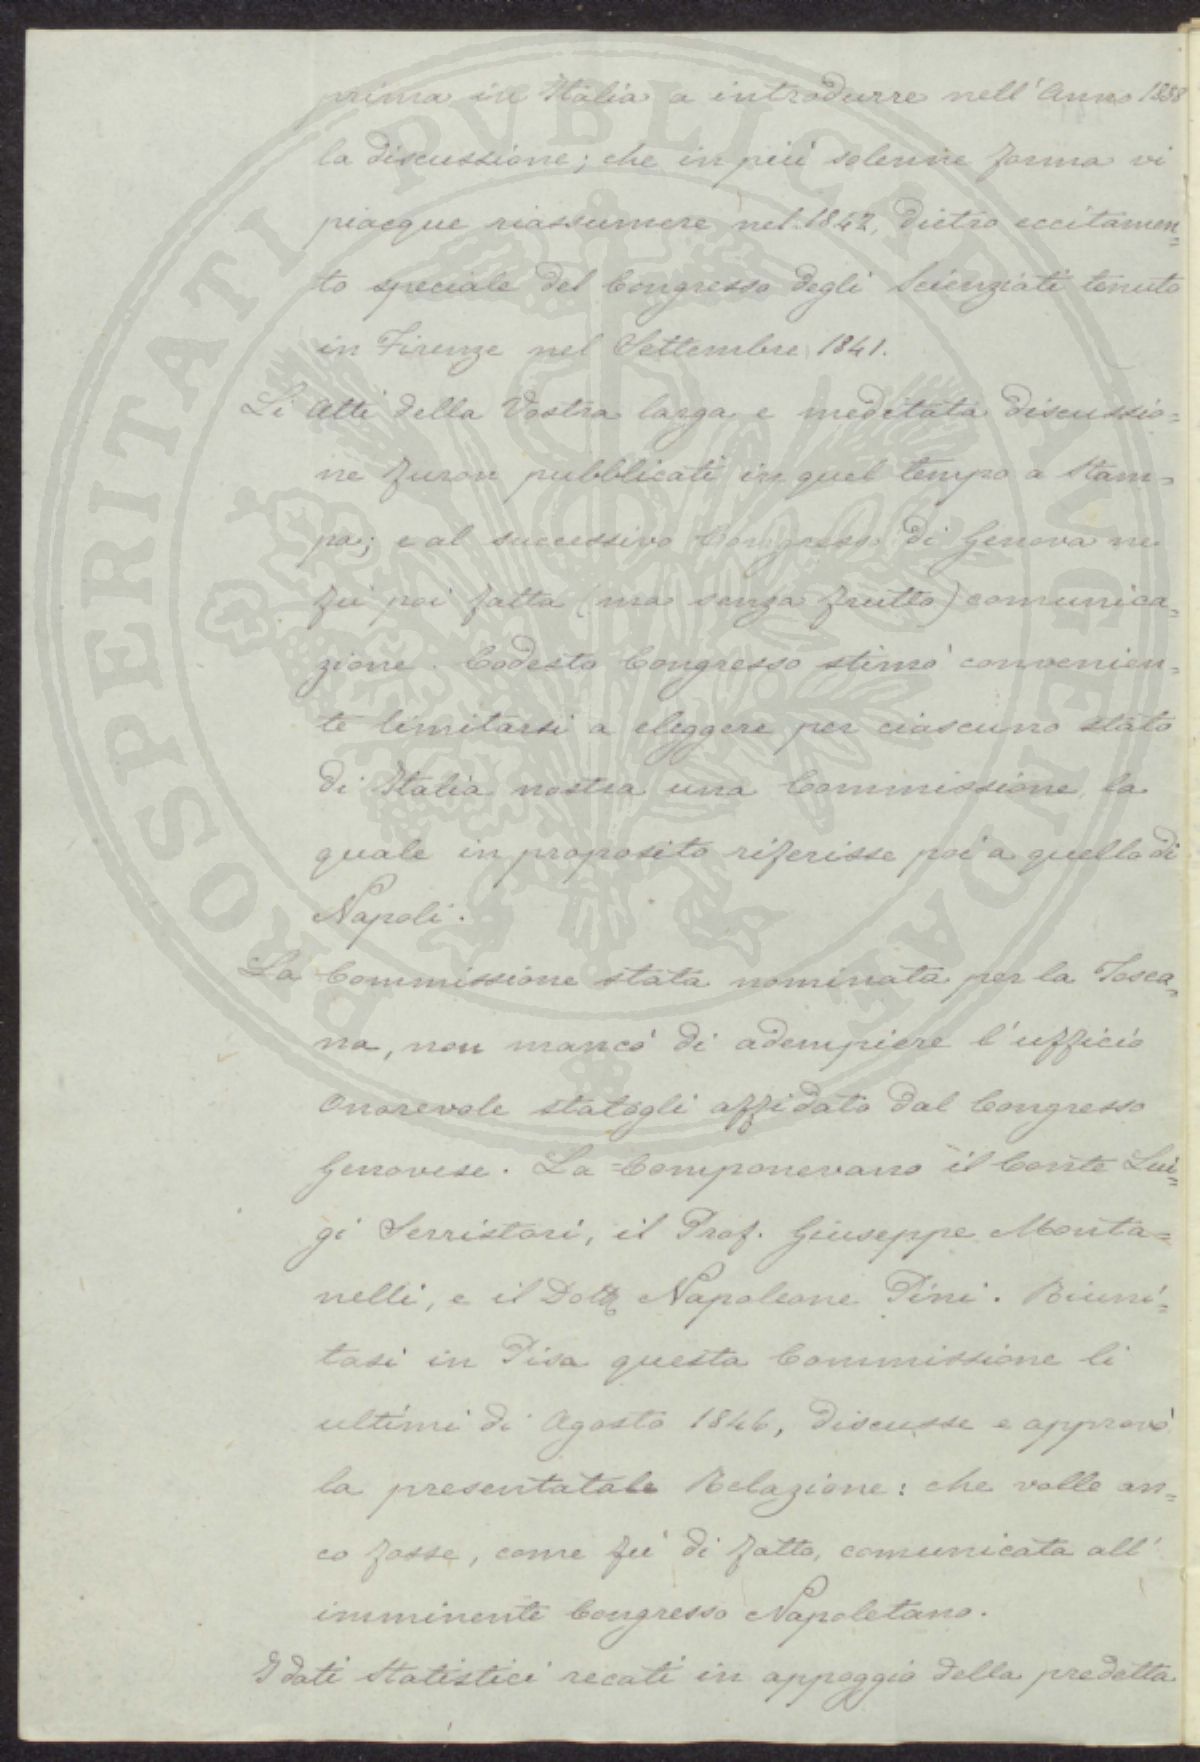 prima in Italia a introdurre nell' Anno 1838
la discussione; che in più solenne forma vi
piacque riassumere nel 1842, dietro eccitamen=
to speciale del Congresso degli Scienziati tenuto
in Firenze nel Settembre 1841.
Li Atti della Vostra larga e meditata discussio=
ne furon pubblicati in quel tempo a Stam=
pa; e al successivo Congresso di Genova ne
fù poi fatta (ma senza frutto) comunica=
zione. Codesto Congresso stimò convenien=
te limitarsi a eleggere per ciascuno stato
di Italia nostra una Commissione, la
quale in proposito riferisse poi a quello di
Napoli.
La Commissione stata nominata per la Tosca=
na, non mancò di adempiere l'ufficio
Onorevole statogli affidato dal Congresso
Genovese. La Componevano il Conte Lui=
gi Serristori, il Prof. Giuseppe Monta=
nelli, e il Dott. Napoleone Pini. Riuni=
tasi in Pisa questa Commissione li
ultimi di Agosto 1846, discusse e approvò
la presentatale Relazione: che volle an=
co fosse, come fù di fatto, comunicata all'
imminente Congresso Napoletano.
I dati Statistici recati in appoggio della predetta
PROSPERITATI PVBLICAE AVGENDAE